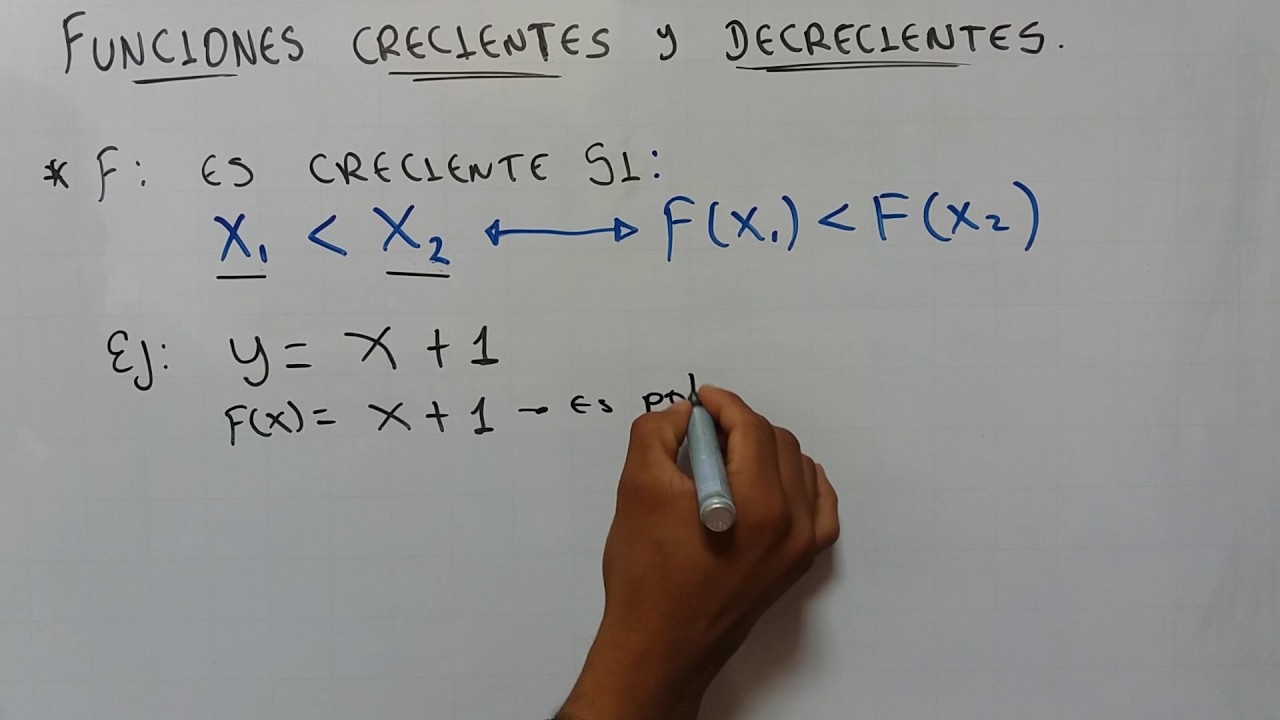 FUNCIONES CRECIENTES y DECRECIENTES.
* F: ES CRECIENTE SI:
X₁ < X₂ ↔ F(X₁) < F(X₂)
Ej: y = x + 1
F(x) = x + 1 → ES